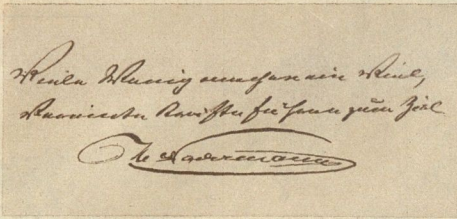 Viele Wenig machen ein Viel,
Vereinte Kräfte führen zum Ziel
Th. Ackermann